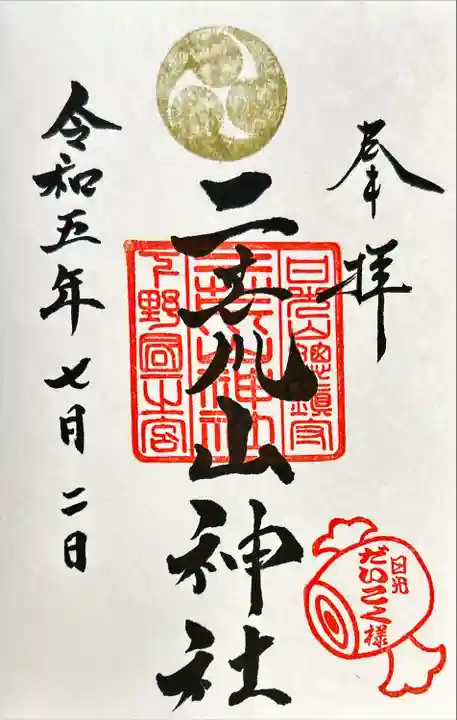 奉拝
二荒山神社
日光山總鎮守
二荒山神社
下野國一之宮
令和五年七月二日
日光
だいこく様